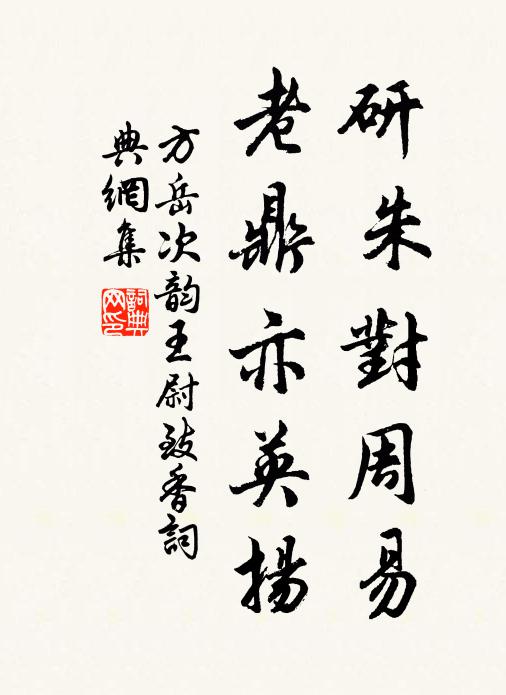 研朱對周易
老鼎亦英揚
方岳次韵王尉致香詞
典網集
詞典網印